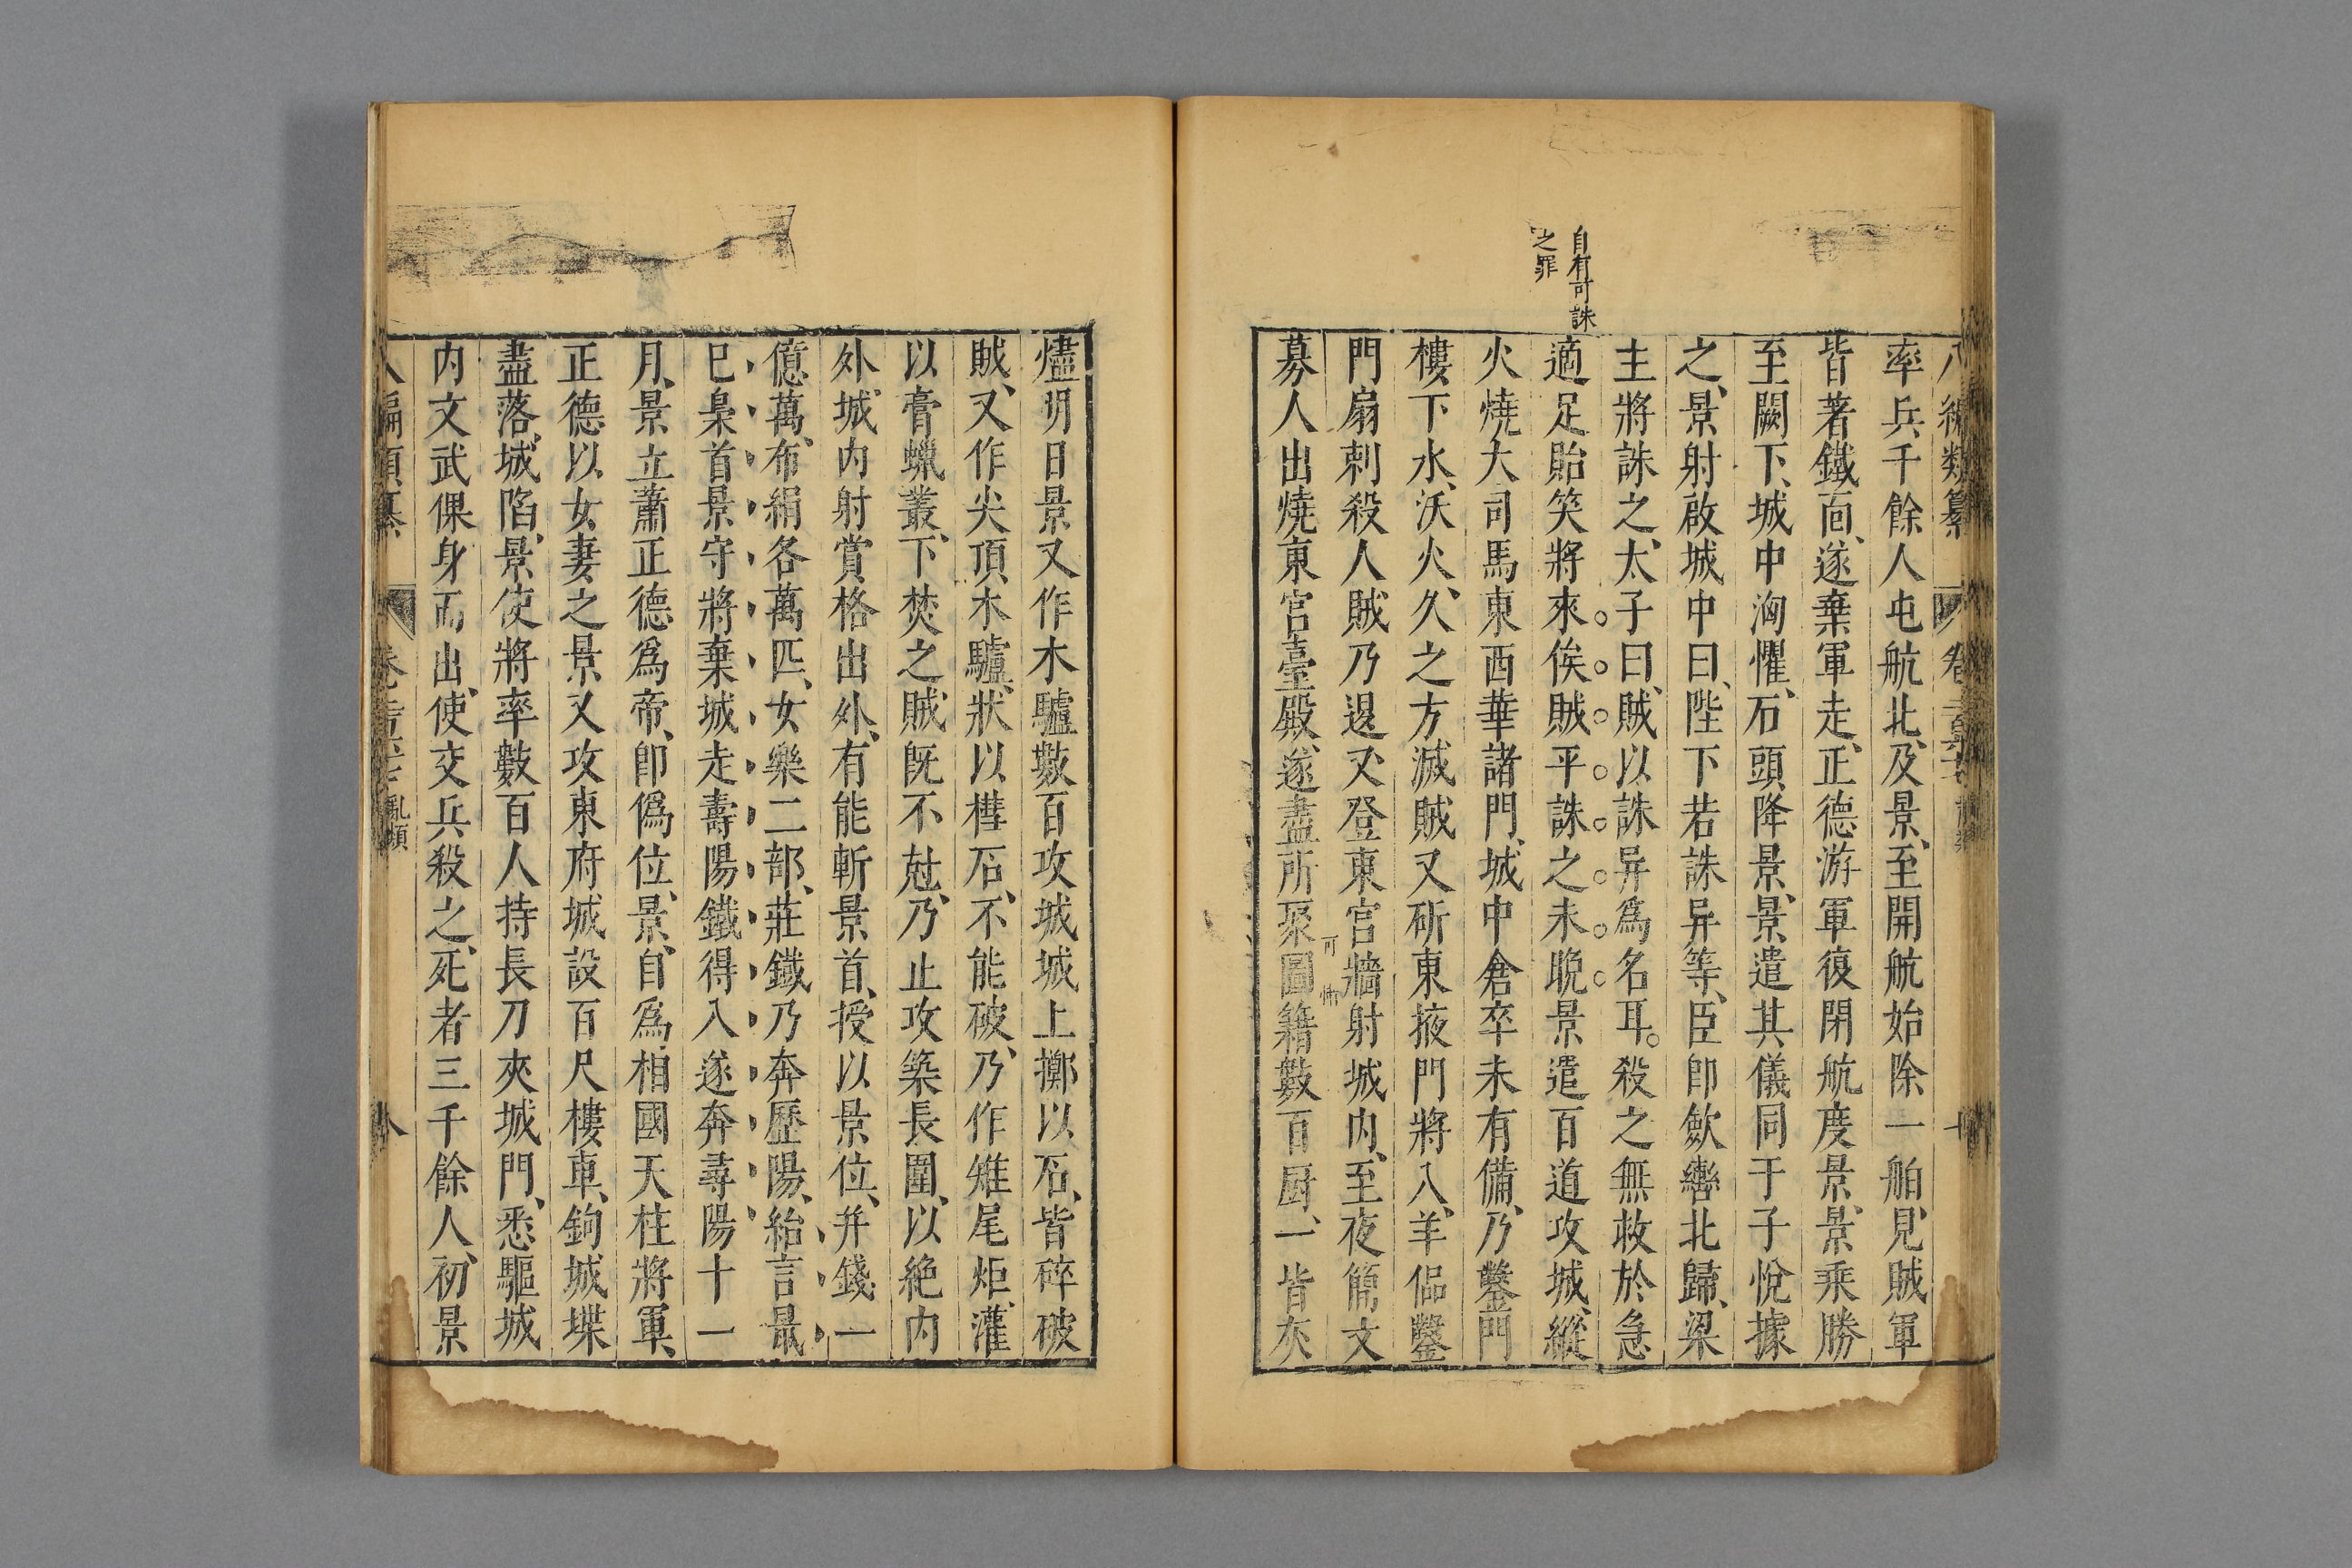 自有可誅
之罪
率兵千餘人屯航北、及景、至開航始除一舶、見賊軍
皆著鐵面、遂棄軍走、正德游軍復閉航度景、景乘勝
至闕下、城中洶懼、石頭降景、景遣其儀同于子悅據
之、景射啟城中曰、陛下若誅异等、臣即斂轡北歸、梁
主將誅之、太子曰、賊以誅异爲名耳。殺之無救於急
適足貽笑將來俟賊平誅之未晚景遣百道攻城、縱
火燒大司馬東西華諸門、城中倉卒未有備、乃鑿門
樓、下水、沃火、久之方滅賊又斫東掖門將入、羊侃鑿
門扇刺殺人賊乃退又登東宮牆射城内、至夜簡文
募人出燒東宮臺殿、遂盡所聚圖籍數百厨、一皆灰
可惜
燼明日景又作木驢數百攻城城上擲以石、皆碎破
賊、又作尖頂木驢、狀以槥石、不能破、乃作雉尾炬、灌
以膏蠟叢、下焚之、賊既不尅、乃止攻築長圍、以絶内
外、城内射賞格出外、有能斬景首、授以景位、并錢一
億萬、布絹各萬匹、女樂二部、莊鐵乃奔歷陽、紿言景
已梟首景守將棄城走壽陽鐵得入遂奔尋陽十一
月、景立蕭正德爲帝、卽僞位、景、自爲相國天柱將軍、
正德以女妻之景又攻東府城設百尺樓車、鉤城堞
盡落、城、陷、景使將率數百人持長刀夾城門、悉驅城
内文武倮身而出、使交兵殺之、死者三千餘人、初景